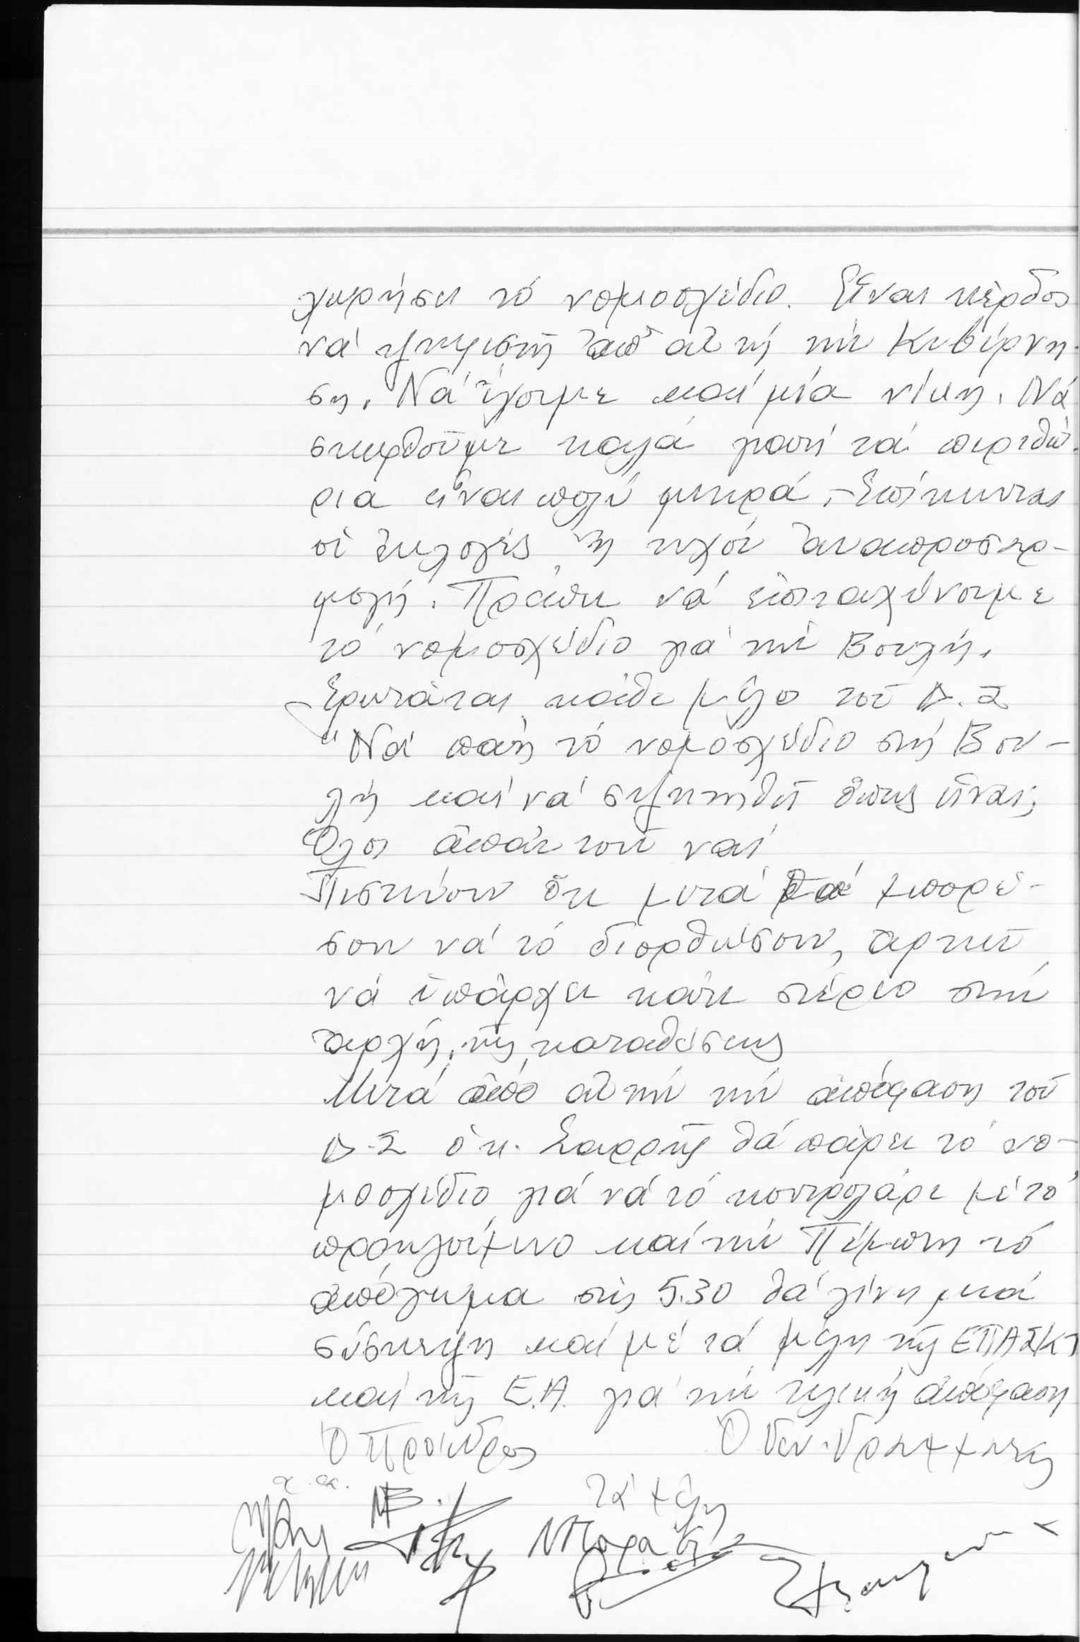 χωρήσει τό νομοσχέδιο. Εἶναι κέρδος
νά ψηφιστῆ ἀπ' αὐτή τήν Κυβέρνη-
ση. Νά ἔχουμε καί μία νίκη. Νά
σκεφθοῦμε καλά γιατί τά περιθώ-
ρια εἶναι πολύ μικρά. Ἐπίκεινται
οἱ ἐκλογές ἤ τυχόν ἀναπροσαρ-
μογή. Πρέπει νά ἐπιταχύνουμε
τό νομοσχέδιο γιά τήν Βουλή.
Ἐρωτᾶται κάθε μέλο τοῦ Δ.Σ
"Νά πάη τό νομοσχέδιο στή Βου-
λή καί νά συζητηθῆ ὅπως εἶναι;
Ὅλοι ἀπαντοῦν ναί
Πιστεύουν ὅτι μετά θά μπορέ-
σουν νά τό διορθώσουν, ἀρκεῖ
νά ὑπάρχει κάτι στέρεο στήν
ἀρχή τῆς καταθέσεως
Μετά ἀπό αὐτήν τήν ἀπόφαση τοῦ
Δ.Σ ὁ κ. Σαρρῆς θά πάρει τό νο-
μοσχέδιο γιά νά τό κοντρολάρει μέ τό
προηγούμενο καί τήν Πέμπτη τό
ἀπόγευμα στίς 5.30 θά γίνη μιά
σύσκεψη καί μέ τά μέλη τῆς ΕΠΑΣΚΤ
καί τῆς Ε.Α. γιά τήν τελική ἀπόφαση
Ὁ Πρόεδρος Ὁ Γεν. Γραμματεύς
Τά μέλη